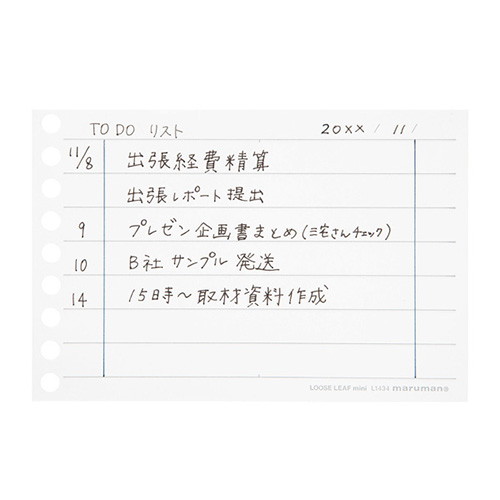 TO DO リスト 20XX / 11 /
11/8 出張経費精算
出張レポート提出
9 プレゼン企画書まとめ(三宅さんチェック)
10 B社サンプル発送
14 15時〜取材資料作成
LOOSE LEAF mini L1434 marumanⓇ